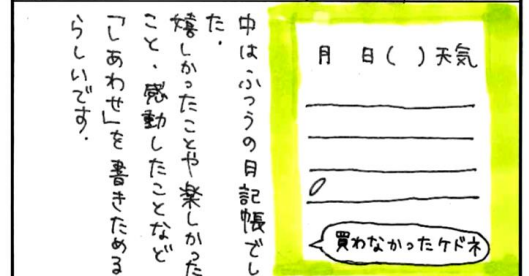 月 日( )天気
買わなかったケドネ
中はふつうの日記帳でし
た.
嬉しかったことや楽しかった
こと、感動したことなど
「しあわせ」を書きためる
らしいです.